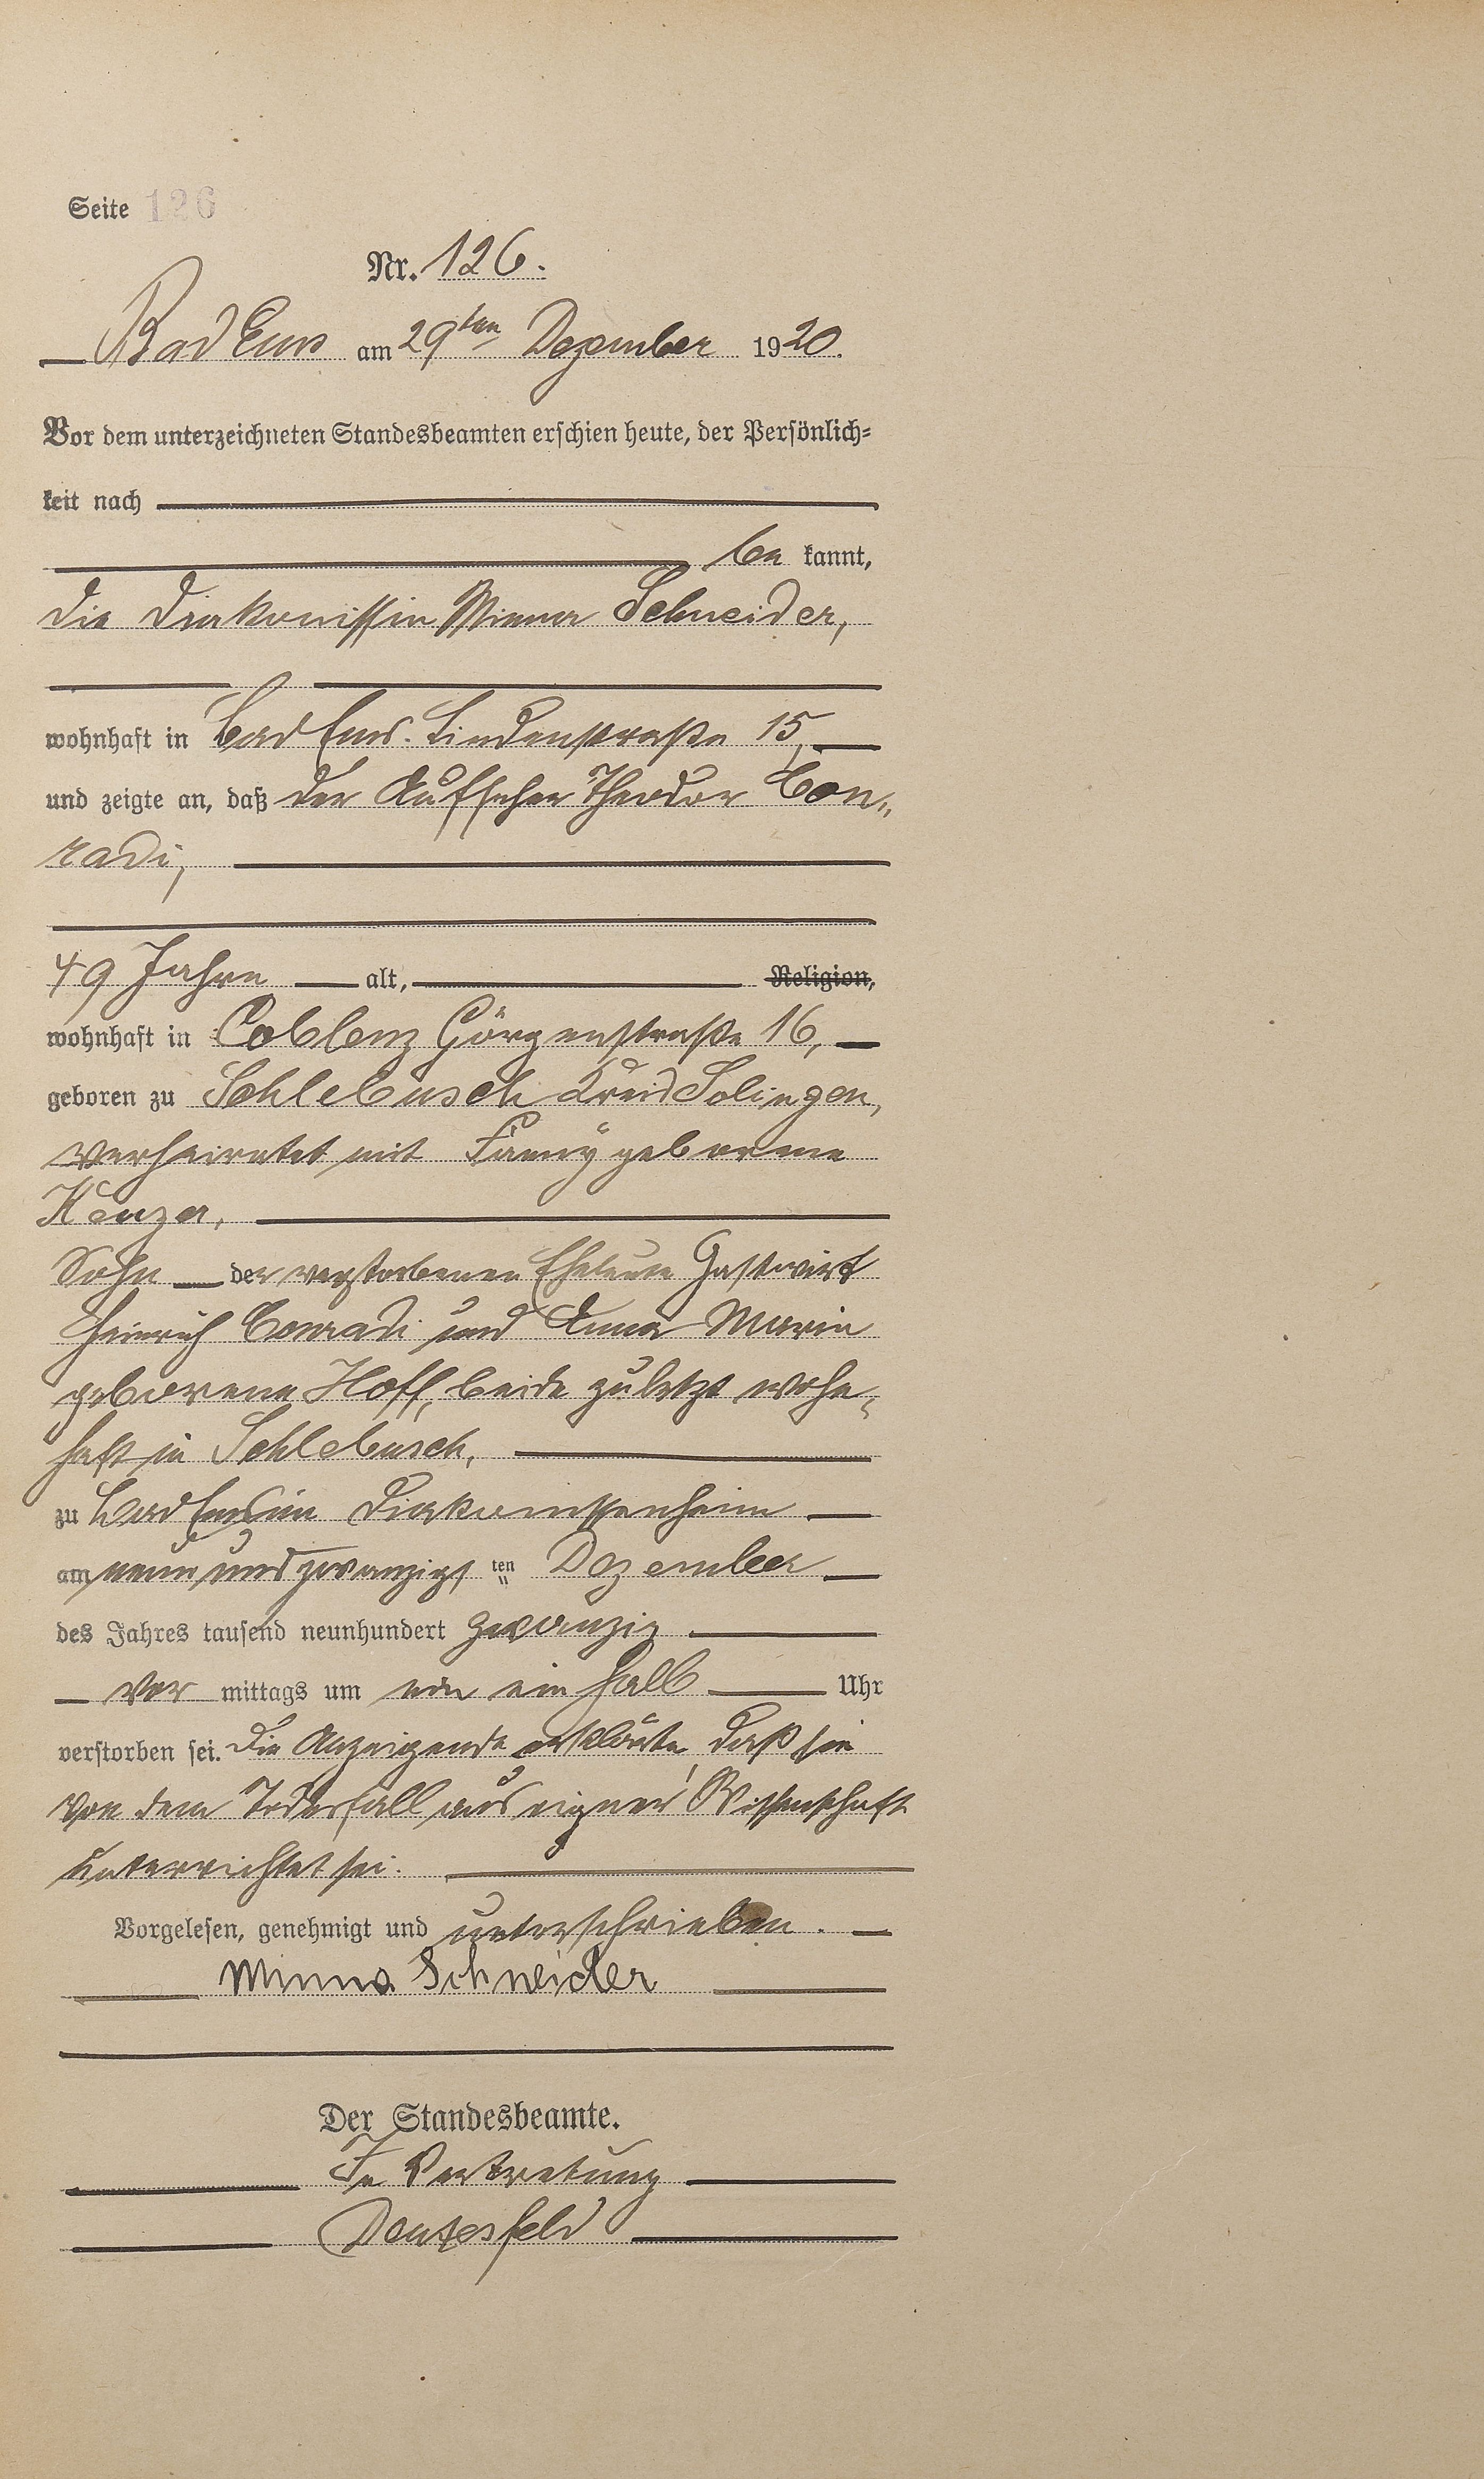 Seite 126
Nr. 126.
Bad Ems am 29ten Dezember 1920.
Vor dem unterzeichneten Standesbeamten erschien heute, der Persönlich=
keit nach
be kannt,
die Diakonissin Minna Schneider,
wohnhaft in Bad Ems. Lindenstraße 15,
und zeigte an, daß der Aufseher Theodor Con„
radi,
49 Jahre alt, Religion,
wohnhaft in Coblenz Görgenstraße 16,
geboren zu Schlebusch Kreis Solingen,
verheiratet mit Fanny geborene
Sohn der verstorbenen Eheleute Gastwirt
Heinrich Conradi und Anna Maria
geborene Hoff, beide zuletzt wohn„
haft in Schlebusch,
zu Bad Ems im Diakonissenheim
am neun und zwanzigs ten Dezember
des Jahres tausend neunhundert zwanzig
Vor mittags um ein halb Uhr
verstorben sei. Die Anzeigende erklärte, daß sie
von dem Todesfall aus eigner Wissenschaft
unterrichtet sei.
Vorgelesen, genehmigt und unterschrieben.
Minna Schneider
Der Standesbeamte.
In Vertretung